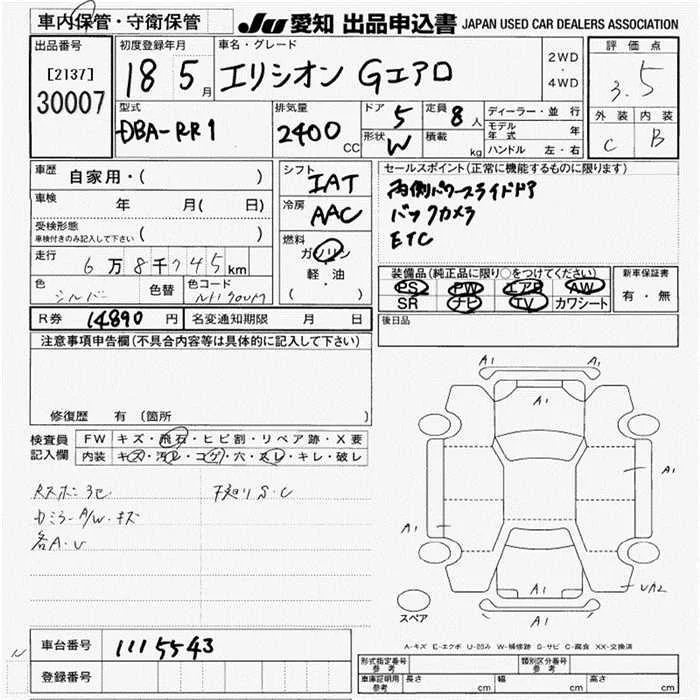 車内保管・守衛保管
JU 愛知 出品申込書 JAPAN USED CAR DEALERS ASSOCIATION
出品番号
[2137]
30007
初度登録年月
18 5月
車名・グレード
エリシオン Gエアロ
2WD
・
4WD
評価点
3.5
外装 内装
C B
型式
DBA-RR1
排気量
2400 CC
ドア 5
形状 W
定員 8人
積載 kg
ディーラー・並行
モデル年式 年
ハンドル 左・右
車歴 自家用・( )
車検 年 月( 日)
受検形態
車検付きのみ記入して下さい ( )
走行 6万8千745km
色 シルバー 色替 色コード
シフト IAT
冷房 AAC
燃料
ガソリン
軽・油
( ・ )
セールスポイント(正常に機能するものに限ります)
両側パワースライドドア
バックカメラ
ETC
装備品(純正品に限り○をつけてください)
PS PW エアB AW
SR ナビ TV カワシート
新車保証書
有・無
R券 14890 円 名変通知期限 月 日
後日品
注意事項申告欄(不具合内容等は具体的に記入して下さい)
修復歴 有 (箇所 )
検査員
記入欄
FW キズ・飛石・ヒビ割・リペア跡・X要
内装 キズ・汚レ・コゲ・穴・スレ・キレ・破レ
下廻りS・C
カミラーA/W・キズ
各A・U
A1 A1
A1
A1
A1
A1 UA2
A1
スペア
A-キズ E-エクボ U-凹み W-補修跡 S-サビ C-腐食 XX-交換済
車台番号 1115543
登録番号
形式指定番号
参考
類別区分番号
参考
車庫証明用
参考
長さ cm 幅 cm 高さ cm